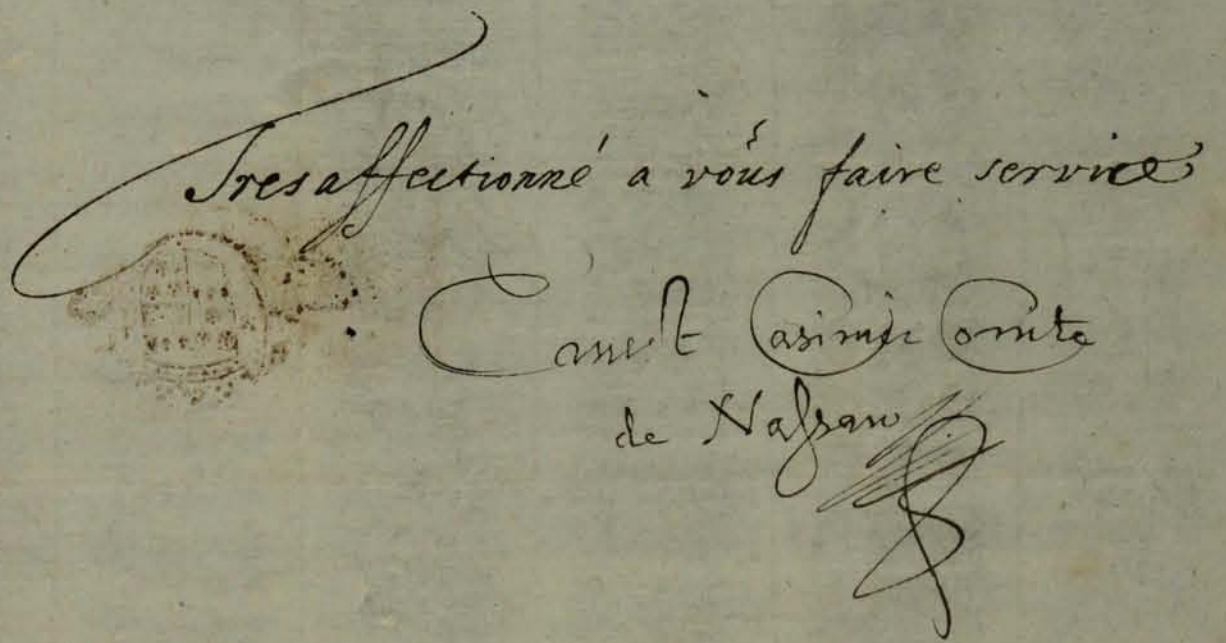 Tresaffectionné a vous faire service
Ernest Casimir Comte
de Nassau